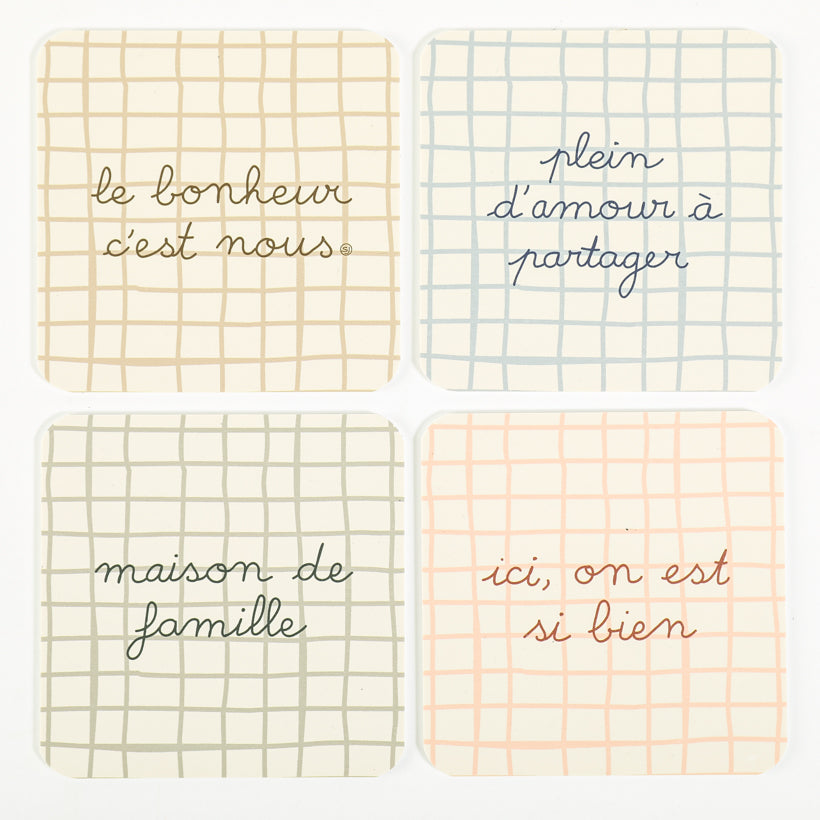 le bonheur
c'est nous
plein
d'amour à
partager
maison de
famille
ici, on est
si bien